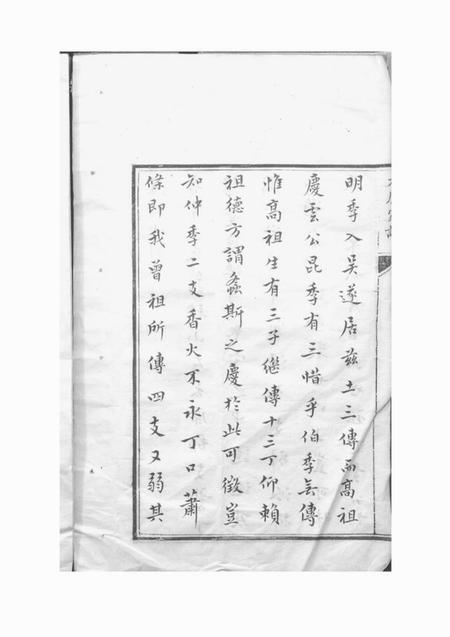 明季入吳遂居兹土三傳而高祖
慶雲公昆季有三惜乎伯季無傳
惟高祖生有三子繼傳十三丁仰賴
祖德方謂螽斯之慶於此可徵豈
知仲季二支香火不永丁口蕭
條即我曾祖所傳四支又弱其